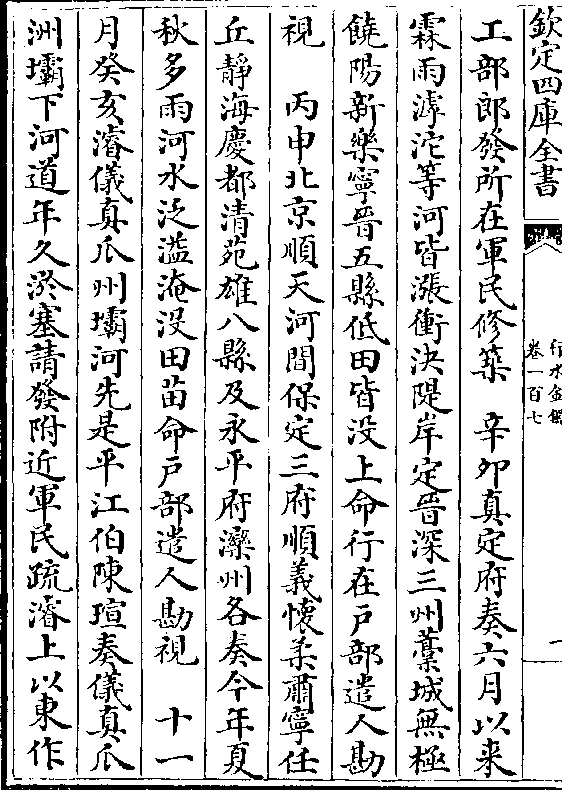 欽定四庫全書
行水金鑑
卷一百七
一
工部郎發所在軍民修築　辛卯真定府奏六月以来
霖雨滹沱等河皆漲衝決隄岸定晉深三州藁城無極
饒陽新樂寧晉五縣低田皆没上命行在戸部遣人勘
視　丙申北京順天河間保定三府順義懷柔肅寧任
丘靜海慶都清苑雄八縣及永平府灤州各奏今年夏
秋多雨河水泛溢淹没田苗命戸部遣人勘視　十一
月癸亥濬儀真瓜州壩河先是平江伯陳瑄奏儀真瓜
洲壩下河道年久淤塞請發附近軍民疏濬上以東作